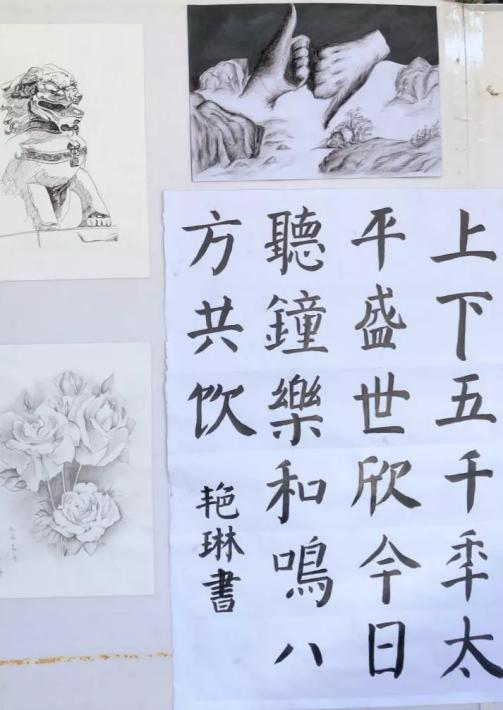 上下五千年太
平盛世欣今日
聽鐘樂和鳴八
方共饮
艳琳書